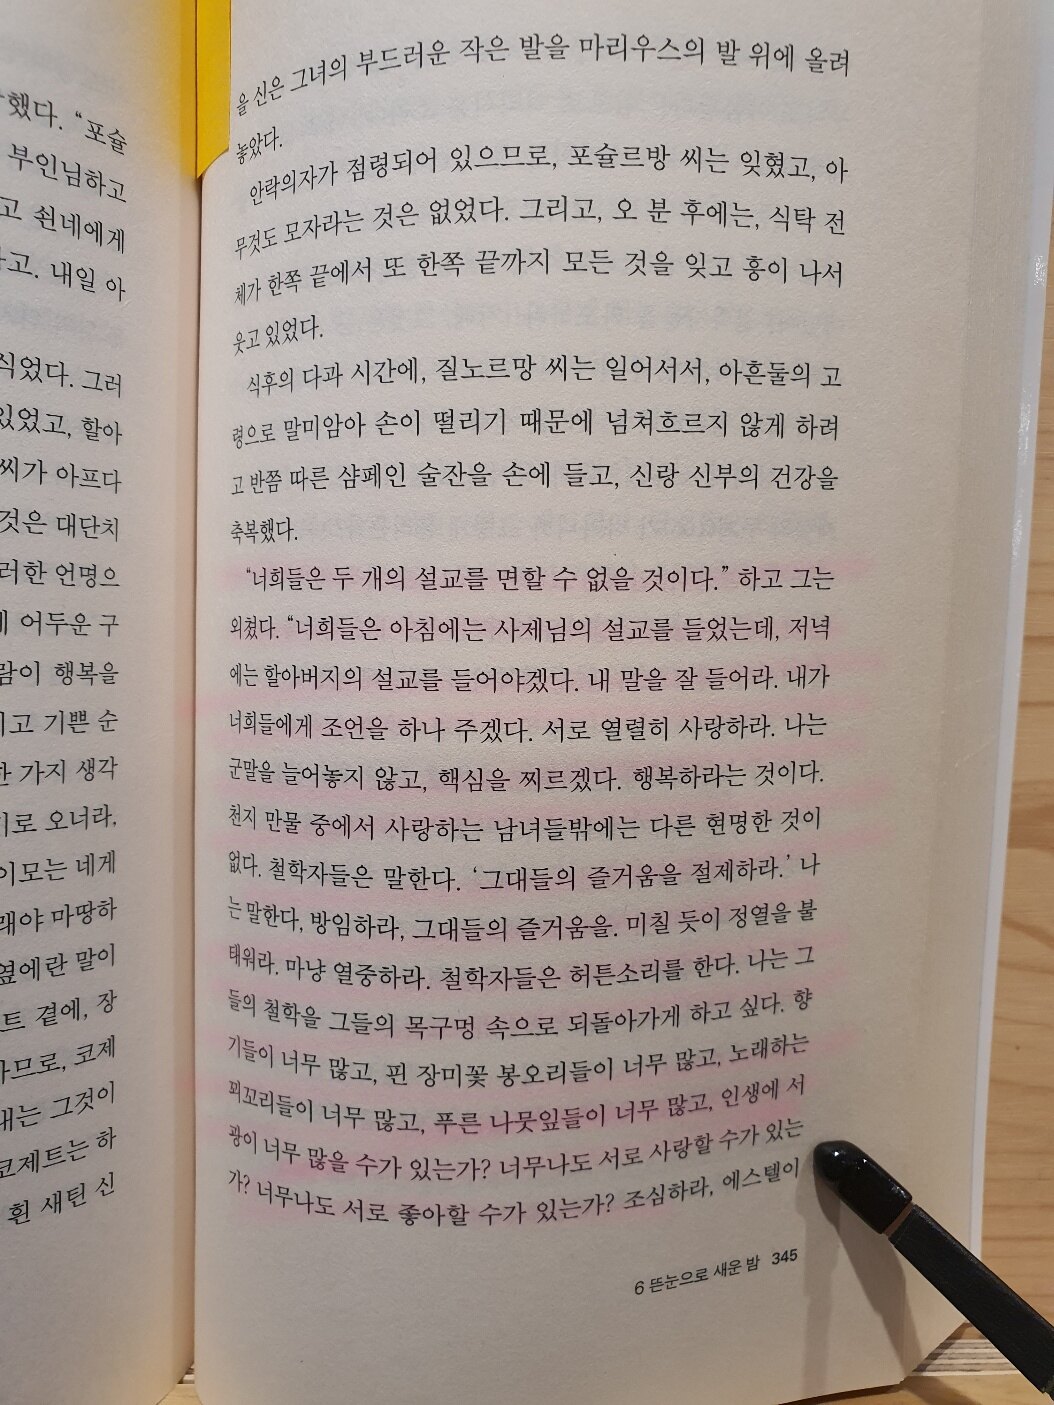 했다. “포슐
부인님하고
고 쇠네에게
고. 내일 아
식었다. 그러
있었고, 할아
씨가 아프다
것은 대단치
러한 언명으
어두운 구
람이 행복을
고 기쁜 순
한 가지 생각
로 오너라,
이모는 네게
래야 마땅하
옆에란 말이
트 곁에, 장
므로, 코제
내는 그것이
코제트는 하
흰 새틴 신
을 신은 그녀의 부드러운 작은 발을 마리우스의 발 위에 올려
놓았다.
안락의자가 점령되어 있으므로, 포슐르방 씨는 잊혔고, 아
무것도 모자라는 것은 없었다. 그리고, 오 분 후에는, 식탁 전
체가 한쪽 끝에서 또 한쪽 끝까지 모든 것을 잊고 흥이 나서
웃고 있었다.
식후의 다과 시간에, 질노르망 씨는 일어서서, 아흔둘의 고
령으로 말미암아 손이 떨리기 때문에 넘쳐흐르지 않게 하려
고 반쯤 따른 샴페인 술잔을 손에 들고, 신랑 신부의 건강을
축복했다.
“너희들은 두 개의 설교를 면할 수 없을 것이다.” 하고 그는
외쳤다. “너희들은 아침에는 사제님의 설교를 들었는데, 저녁
에는 할아버지의 설교를 들어야겠다. 내 말을 잘 들어라. 내가
너희들에게 조언을 하나 주겠다. 서로 열렬히 사랑하라. 나는
군말을 늘어놓지 않고, 핵심을 찌르겠다. 행복하라는 것이다.
천지 만물 중에서 사랑하는 남녀들밖에는 다른 현명한 것이
없다. 철학자들은 말한다. ‘그대들의 즐거움을 절제하라.’ 나
는 말한다, 방임하라, 그대들의 즐거움을. 미칠 듯이 정열을 불
태워라. 마냥 열중하라. 철학자들은 허튼소리를 한다. 나는 그
들의 철학을 그들의 목구멍 속으로 되돌아가게 하고 싶다. 향
기들이 너무 많고, 핀 장미꽃 봉오리들이 너무 많고, 노래하는
꾀꼬리들이 너무 많고, 푸른 나뭇잎들이 너무 많고, 인생에 서
광이 너무 많을 수가 있는가? 너무나도 서로 사랑할 수가 있는
가? 너무나도 서로 좋아할 수가 있는가? 조심하라, 에스텔이
6 뜬눈으로 새운 밤 345